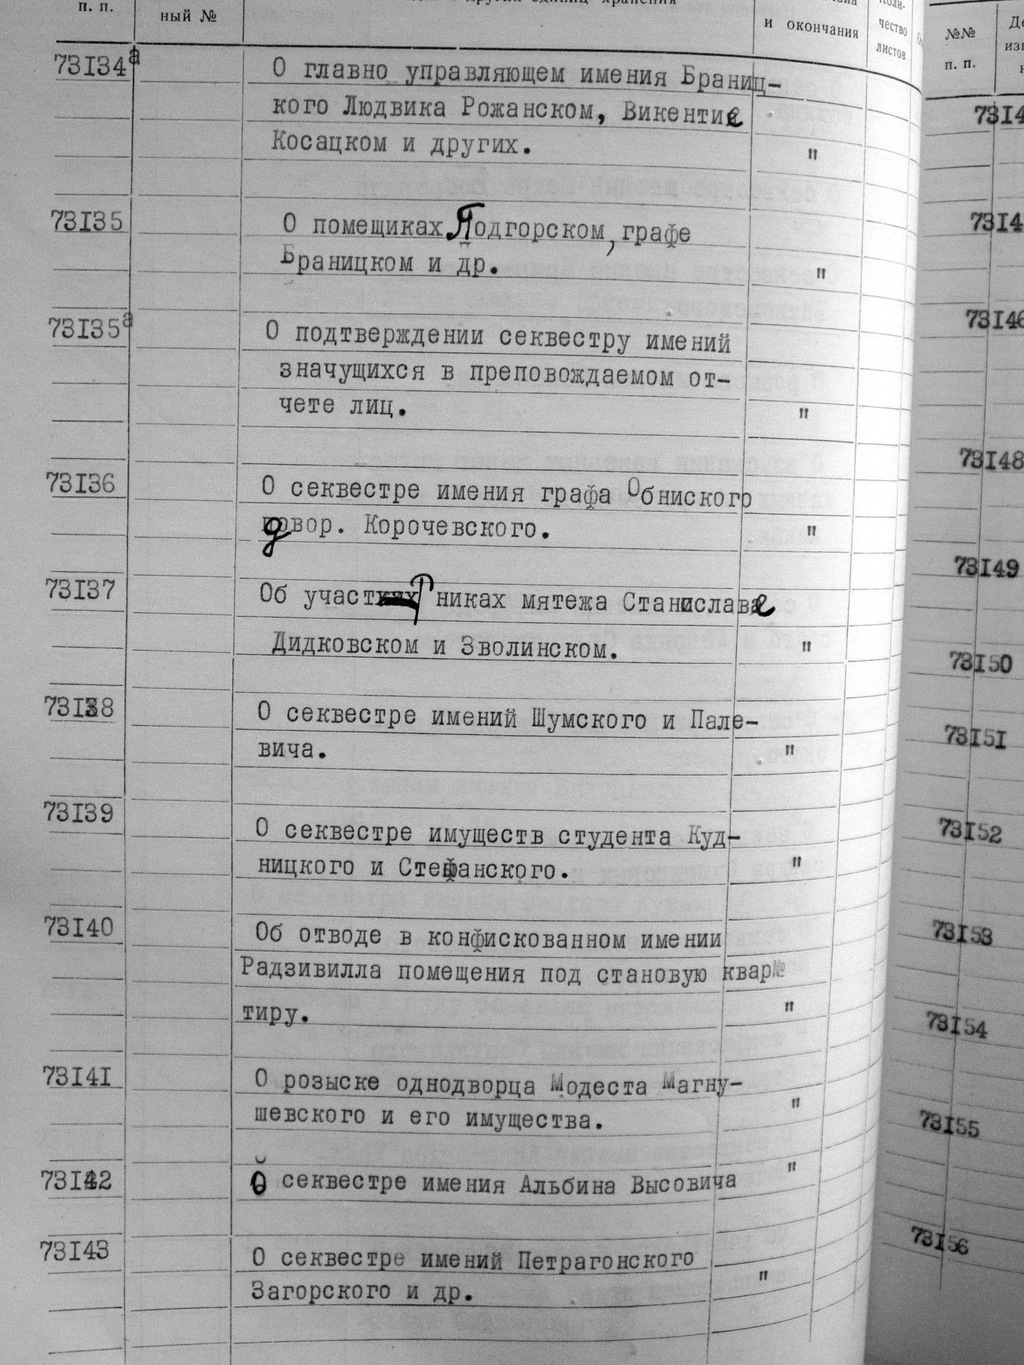 п. п.
ный №
единиц хранения
и окончания
чество
листов
№№
п. п.
73134а
О главно управляющем имения Браниц-
кого Людвика Рожанском, Викентие
Косацком и других.
"
73135
О помещиках Подгорском, графе
Браницком и др.
"
73135а
О подтверждении секвестру имений
значущихся в преповождаемом от-
чете лиц.
"
73136
О секвестре имения графа Обниского
двор. Корочевского.
"
73137
Об участниках мятежа Станиславе
Дидковском и Зволинском.
"
73138
О секвестре имений Шумского и Пале-
вича.
"
73139
О секвестре имуществ студента Куд-
ницкого и Стефанского.
"
73140
Об отводе в конфискованном имении
Радзивилла помещения под становуюквар№
тиру.
"
73141
О розыске однодворца Модеста Магну-
шевского и его имущества.
"
73142
О секвестре имения Альбина Высовича
"
73143
О секвестре имений Петрагонского
Загорского и др.
"
7314
7314
73146
73148
73149
73150
73151
73152
73153
73154
73155
73156